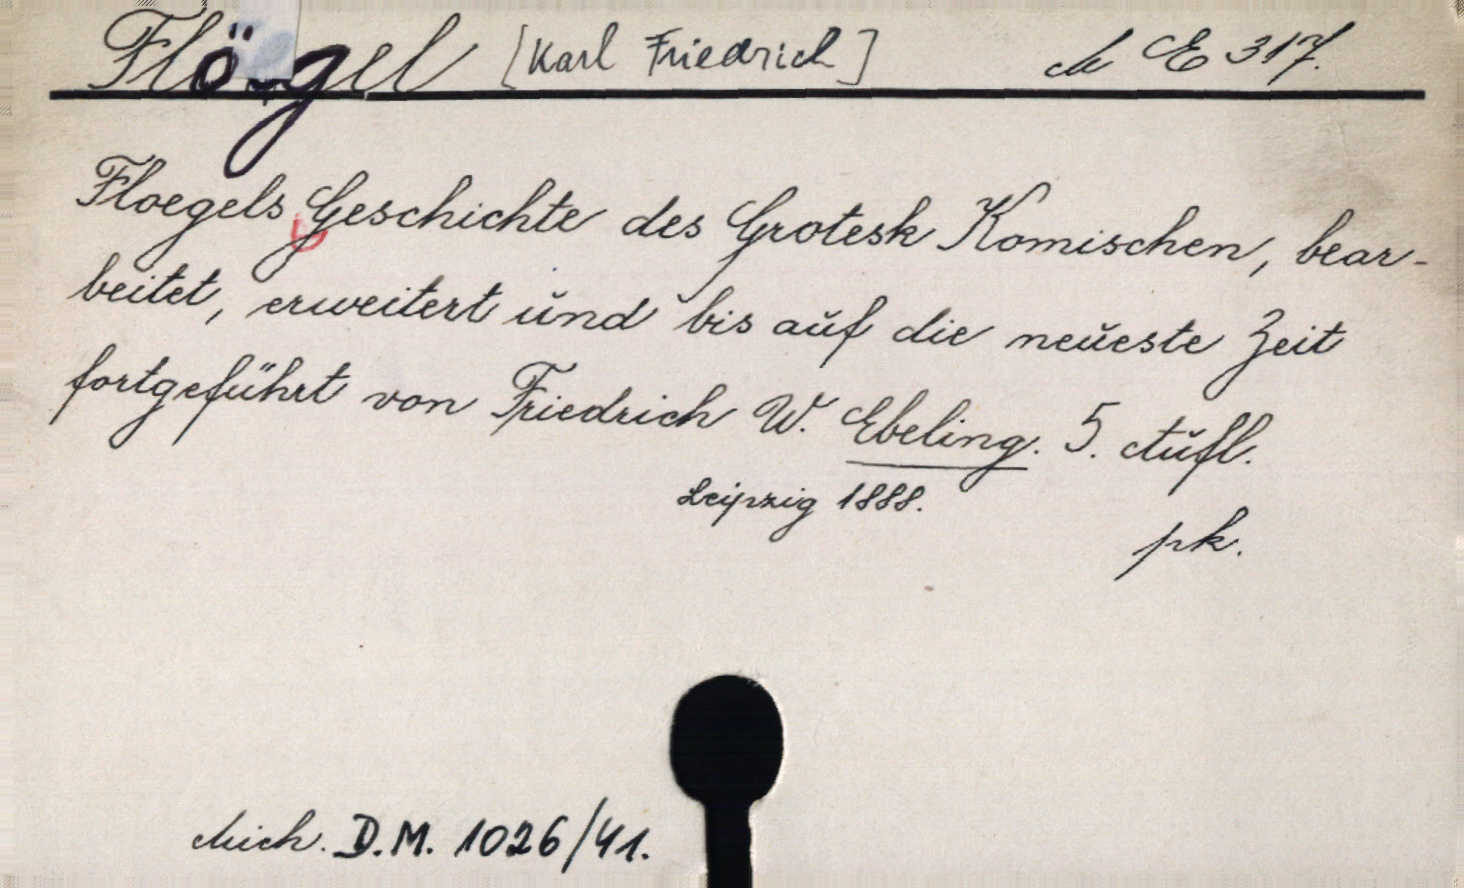 Flögel [Karl Friedrich] M E 317.
Floegels Geschichte des Grotesk Komischen, bear-
beitet, erweitert und bis auf die neueste Zeit
fortgeführt von Friedrich W. Ebeling. 5. Aufl.
Leipzig 1888.
pk.
Mich. D.M. 1026/41.